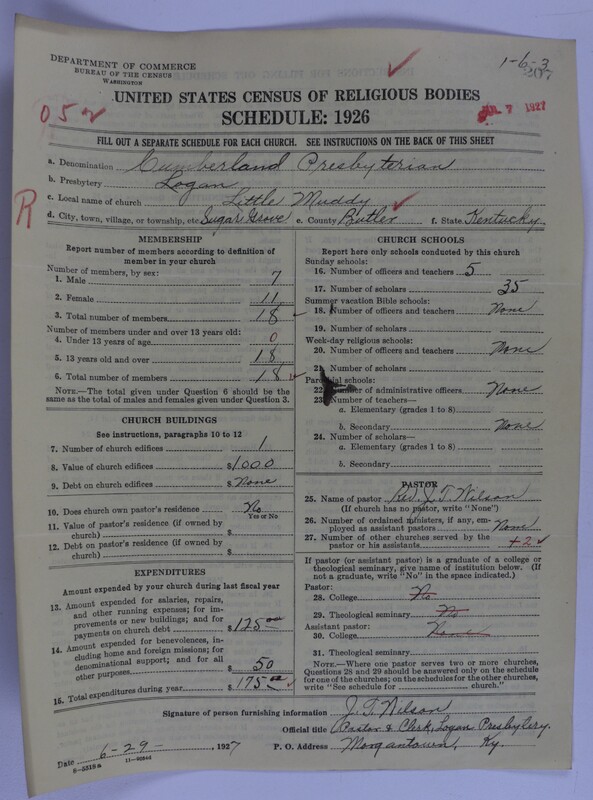 DEPARTMENT OF COMMERCE
BUREAU OF THE CENSUS
WASHINGTON
1-6-3
307
052
UNITED STATES CENSUS OF RELIGIOUS BODIES
SCHEDULE: 1926
JUL 7 1927
FILL OUT A SEPARATE SCHEDULE FOR EACH CHURCH. SEE INSTRUCTIONS ON THE BACK OF THIS SHEET
a. Denomination Cumberland Presbyterian
b. Presbytery Logan
c. Local name of church Little Muddy
R
d. City, town, village, or township, etc Sugar Grove e. County Butler f. State Kentucky
MEMBERSHIP
Report number of members according to definition of member in your church
Number of members, by sex:
1. Male 7
2. Female 11
3. Total number of members 18
Number of members under and over 13 years old:
4. Under 13 years of age 0
5. 13 years old and over 18
6. Total number of members 18
NOTE.—The total given under Question 6 should be same as the total of males and females given under Question 3.
CHURCH BUILDINGS
See instructions, paragraphs 10 to 12
7. Number of church edifices 1
8. Value of church edifices $1000
9. Debt on church edifices $ None
10. Does church own pastor's residence No
Yes or No
11. Value of pastor's residence (if owned by church) $
12. Debt on pastor's residence (if owned by church) $
EXPENDITURES
Amount expended by your church during last fiscal year
13. Amount expended for salaries, repairs, and other running expenses; for improvements or new buildings; and for payments on church debt $125.00
14. Amount expended for benevolences, including home and foreign missions; for denominational support; and for all other purposes $ 50
15. Total expenditures during year $175.00
CHURCH SCHOOLS
Report here only schools conducted by this church
Sunday schools:
16. Number of officers and teachers 5
17. Number of scholars 35
Summer vacation Bible schools:
18. Number of officers and teachers None
19. Number of scholars
Week-day religious schools:
20. Number of officers and teachers None
21. Number of scholars
Parochial schools:
22. Number of administrative officers None
23. Number of teachers—
a. Elementary (grades 1 to 8)
b. Secondary None
24. Number of scholars—
a. Elementary (grades 1 to 8)
b. Secondary
PASTOR
25. Name of pastor Rev. J. T. Wilson
(If church has no pastor, write "None")
26. Number of ordained ministers, if any, employed as assistant pastors None
27. Number of other churches served by the pastor or his assistants +2
If pastor (or assistant pastor) is a graduate of a college or theological seminary, give name of institution below. (If not a graduate, write "No" in the space indicated.)
Pastor:
28. College No
29. Theological seminary No
Assistant pastor:
30. College None
31. Theological seminary
NOTE.—Where one pastor serves two or more churches, Questions 28 and 29 should be answered only on the schedule for one of the churches; on the schedules for the other churches, write "See schedule for church."
Signature of person furnishing information J. T. Wilson
Official title Pastor & Clerk, Logan Presbytery.
Date 6-29-, 1927 P. O. Address Morgantown, Ky.